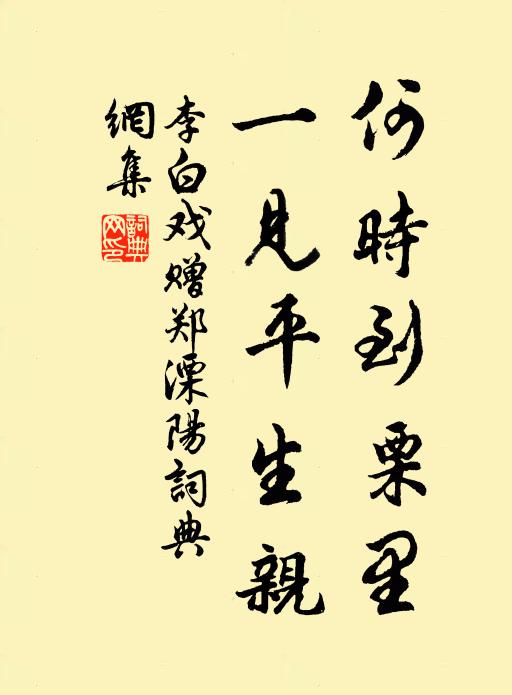 何時到栗里
一見平生親
李白戏赠郑溧陽詞典
網集
詞典
网印